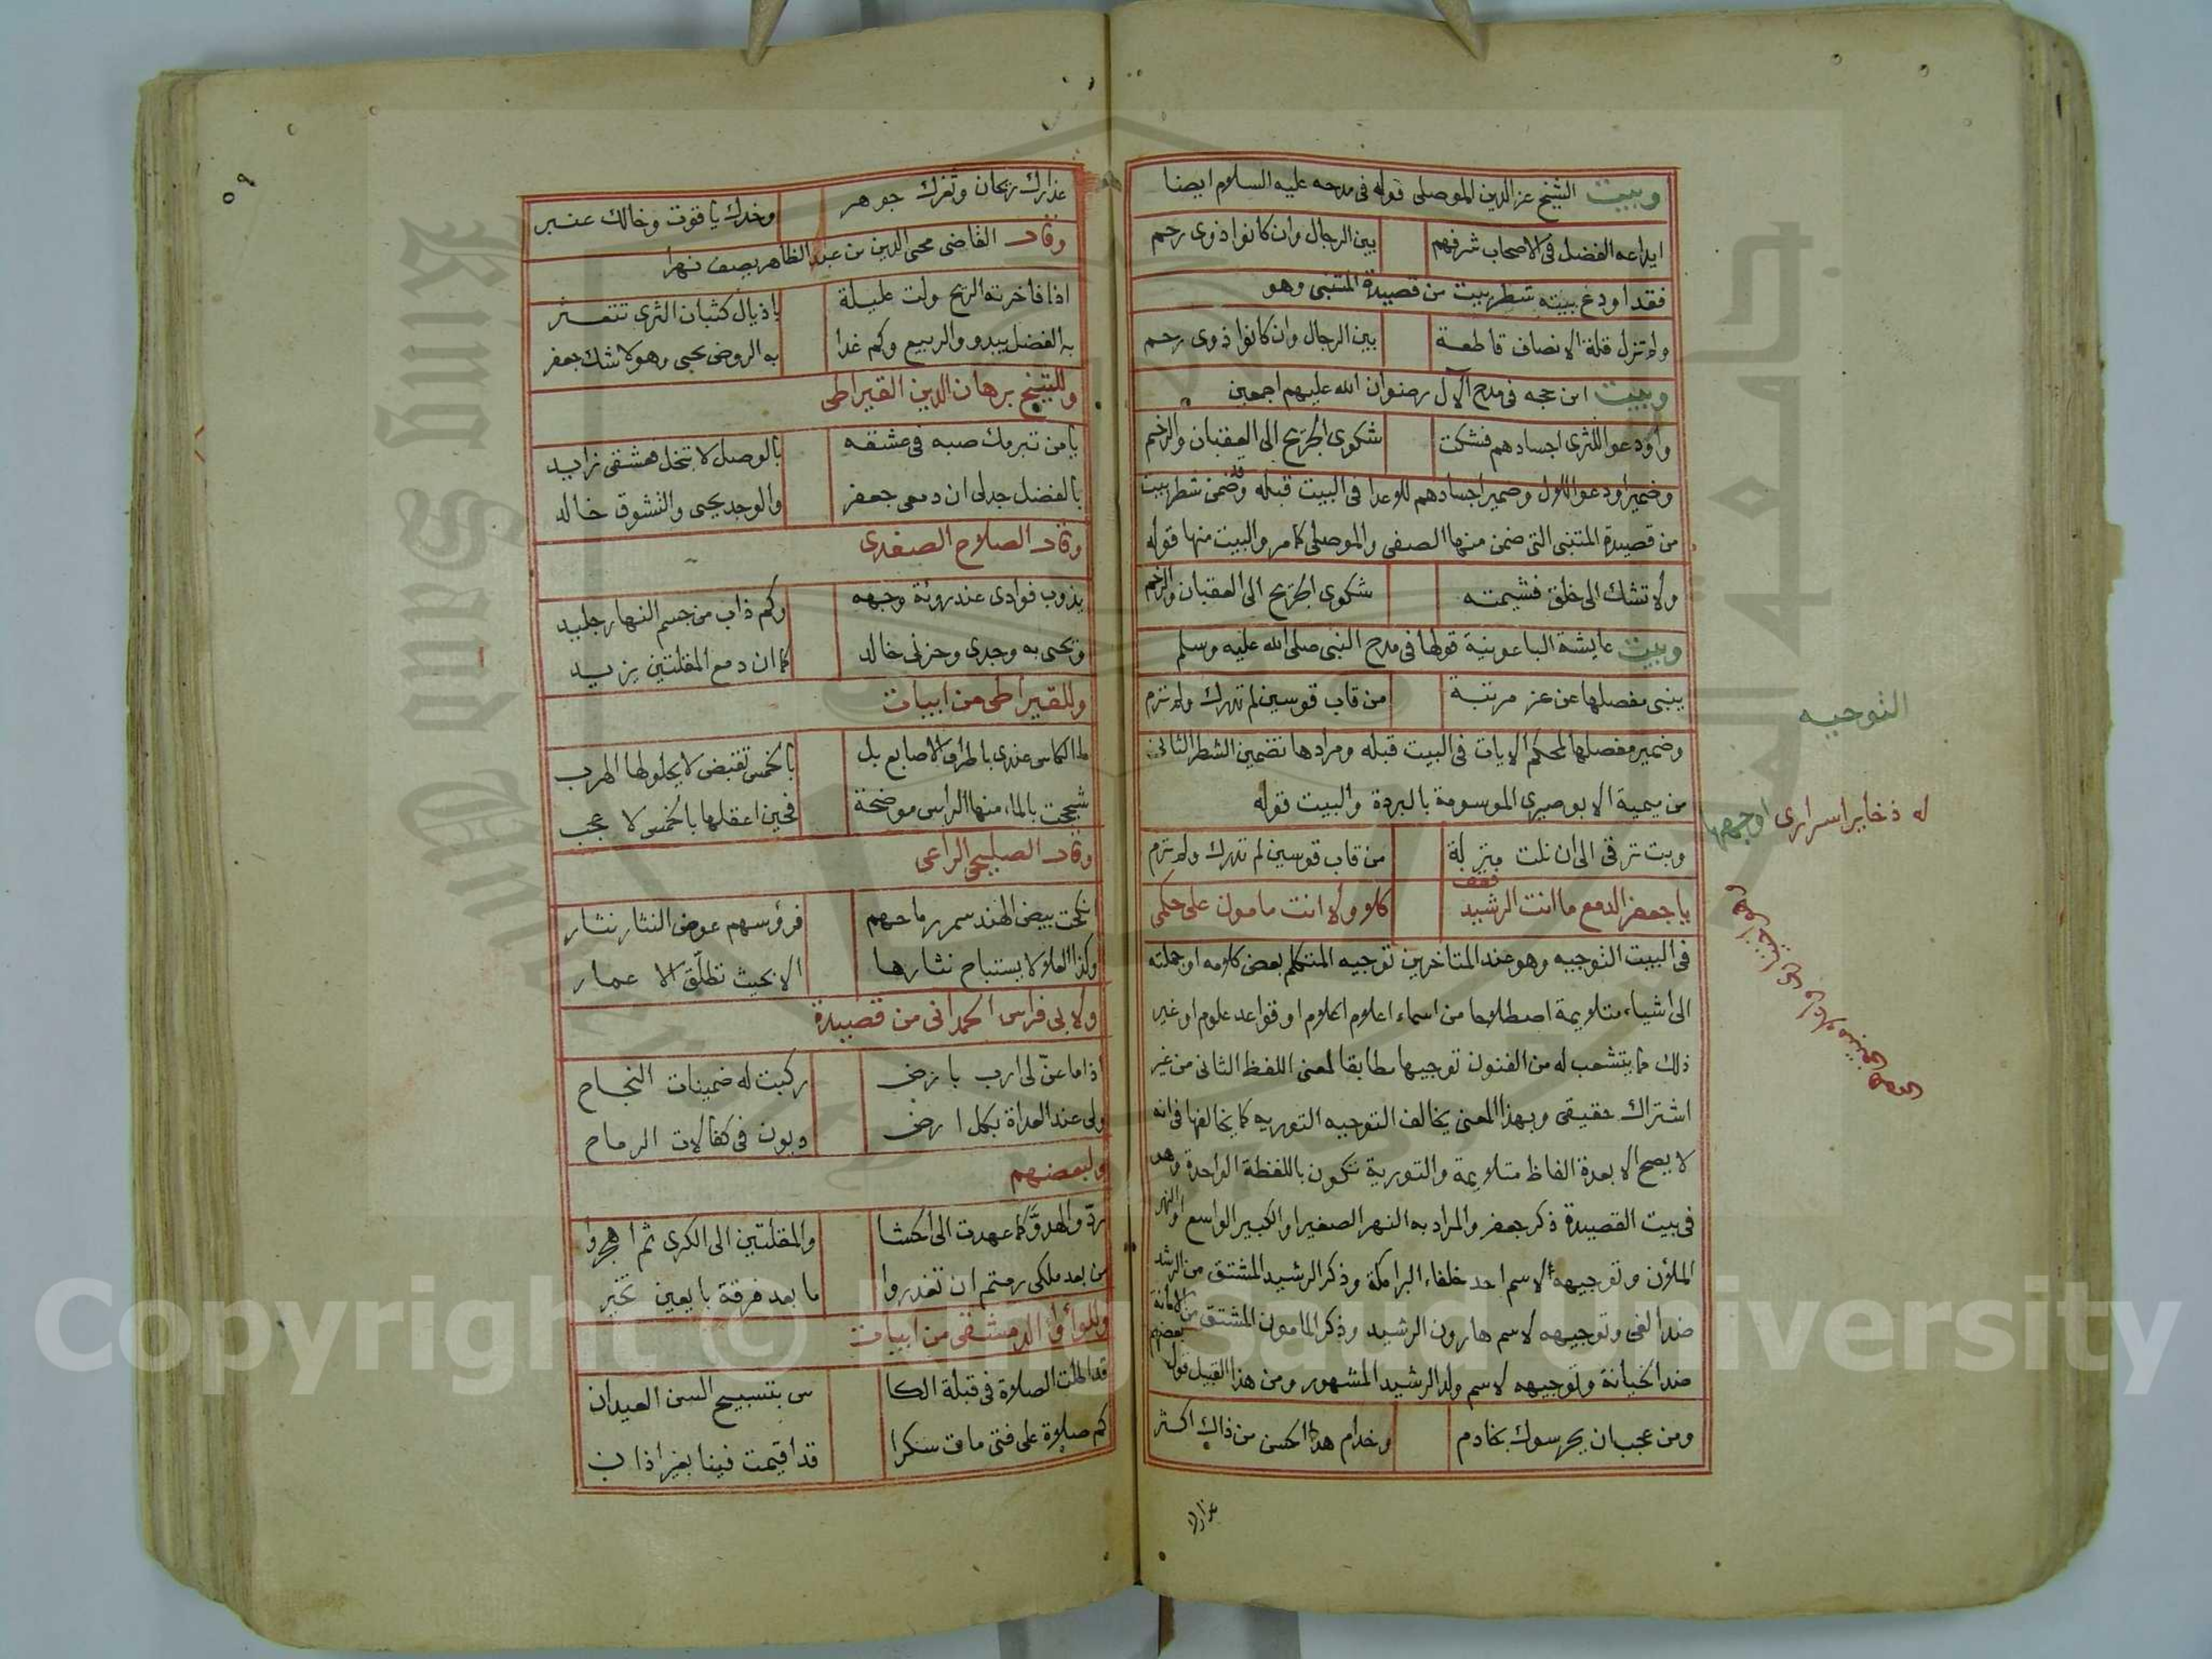 وبيت الشيخ عز الدين الموصلى قوله فى مدحه عليه السلام ايضا
ايداعه الفضل فى الاصحاب شرفهم بين الرجال وان كانوا ذوى رحم
فقد اودع بيته شطر بيت من قصيدة المتنبى وهو
ولم تزل قلة الانصاف قاطعة بين الرجال وان كانوا ذوى رحم
وبيت ابن حجه فى مدح الآل رضوان الله عليهم اجمعين
واودعوا للثرى اجسادهم فشكت شكوى الجريح الى العقبان والرخم
وضمير اودعوا للاول وضمير اجسادهم للاعدا فى البيت قبله وضمن شطر بيت
من قصيدة المتنبى التى ضمن منها الصفى والموصلى كما مر والبيت منها قوله
ولا تشك الى خلق فشيمته شكوى الجريح الى العقبان والرخم
وبيت عايشة الباعونية قولها فى مدح النبى صلى الله عليه وسلم
ينبى مفصلها عن عز مرتبة من قاب قوسين لم تدرك ولم ترم
وضمير مفصلها لمحكم الايات فى البيت قبله ومرادها تضمين الشطر الثانى
من ميمية الابوصيرى الموسومة بالبردة والبيت قوله
وبت ترقى الى ان نلت منزلة من قاب قوسين لم تدرك ولم ترم
يا جعفر الدمع ما انت الرشيد فقف كلا ولا انت مامون على حكمى
فى البيت التوجيه وهو عند المتاخرين توجيه المتكلم بعض كلامه او جملته
الى اشياء متلايمة اصطلاحا من اسماء اعلام او قواعد علوم او غير
ذلك مما يتشعب له من الفنون توجيها مطابقا لمعنى اللفظ الثانى من غير
اشتراك حقيقى وبهذا المعنى يخالف التوجيه التوريه كما يخالفها فى انه
لا يصح الا بعدة الفاظ متلايمة والتورية تكون باللفظة الواحدة وهنا
فى بيت القصيدة ذكر جعفر والمراد به النهر الصغير او الكبير الواسع او النهر
الملآن وتوجيهه لاسم احد خلفاء البرامكة وذكر الرشيد المشتق من الرشد
ضد الغى وتوجيهه لاسم هارون الرشيد وذكر المامون المشتق من الامانة
ضد الخيانة وتوجيهه لاسم ولد الرشيد المشهور ومن هذا القبيل قول بعضهم
ومن عجب ان يحرسوك بخادم وخدام هذا الحسن من ذاك اكثر
عذارك
التوجيه
له ذخاير اسرارى اوجهها
٥٩
عذارك ريحان وثغرك جوهر وخدك ياقوت وخالك عنبر
وقال القاضى محيى الدين بن عبد الظاهر يصف نهرا
اذا فاخرته الريح ولت عليلة باذيال كثبان الثرى تتعثر
به الفضل يبدو والربيع وكم غدا به الروض يحيى وهو لا شك جعفر
وللشيخ برهان الدين القيراطى
يا من تبرمك صبه فى عشقه بالوصل لا تبخل فعشقى زايد
بالفضل جد لى ان دمعى جعفر والوجد يحيى والتشوق خالد
وقال الصلاح الصفدى
يذوب فوادى عند روية وجهه وكم ذاب من جسم النهار جليد
ويحيى به وجدى وحزنى خالد كما ان دمع المقلتين يزيد
وللقيراطى من ابيات
ما الكاس عندى باطراف الاصابع بل بالخمس تقبض لا يحلو لها الهرب
شججت بالماء منها الراس موضحة فحين اعقلها بالخمس لا عجب
وقال الصليحى الراعى
انكحت بيض الهند سمر رماحهم فرؤسهم عوض النثار نثار
وكذا العلا لا يستباح نثارها الا بحيث تطلق الاعمار
ولابى فراس الحمدانى من قصيدة
اذا ما عن لى ارب بارض ركبت له ضمينات النجاح
ولى عند العداة بكل ارض ديون فى كفالات الرماح
ولبعضهم
ردوا الهدو كما عهدت الى الحشا والمقلتين الى الكرى ثم اهجروا
من بعد ملكى رمتم ان تغدروا ما بعد فرقة بايعين تخير
وللوأواء الدمشقى من ابيات
قد اطلت الصلاة فى قبلة الكا س بتسبيح السن العيدان
كم صلاة على فتى مات سكرا قد اقيمت فينا بغير اذان
Copyright © King Saud University
King Saud University